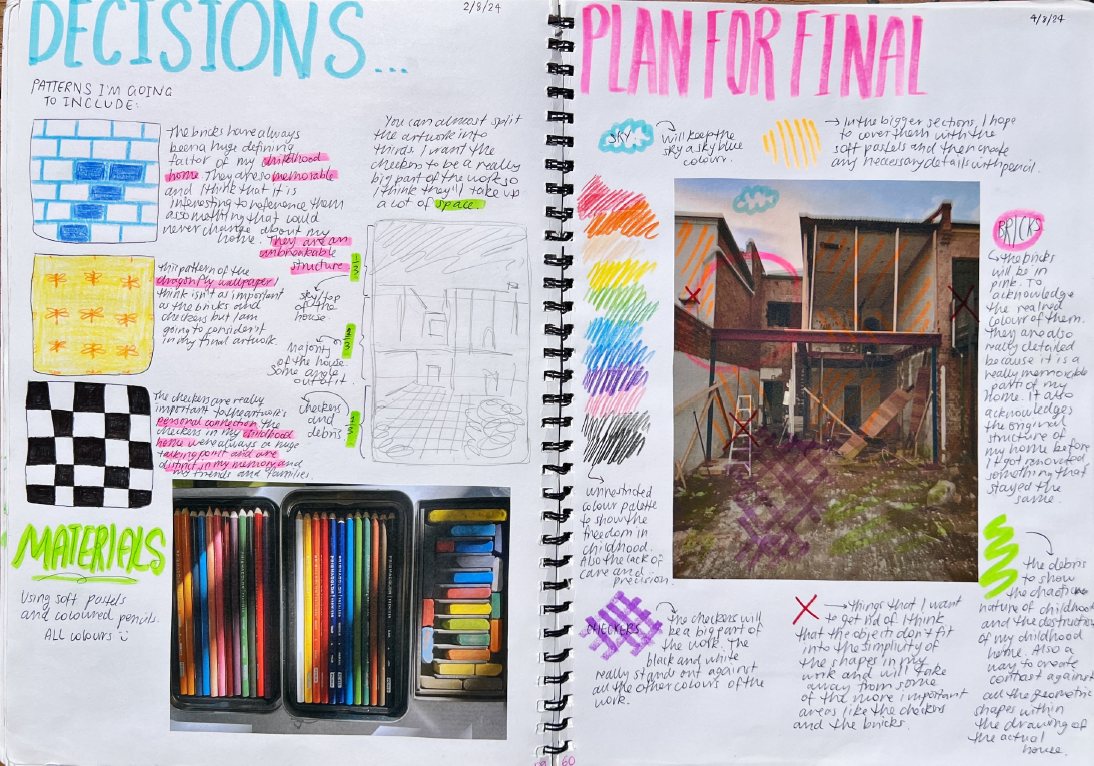 DECISIONS...
2/8/24
PATTERNS I'M GOING
TO INCLUDE:
The bricks have always
been a huge defining
factor of my childhood
home. They are so memorable
and I think that it is
interesting to reference them
as something that would
never change about my
home. They are an
unbreakable
structure
this pattern of the
dragonfly wallpaper I
think isn't as important
as the bricks and
checkers but I am
going to consider it
in my final artwork.
The checkers are really
important to the artwork's
personal connection. The
checkers in my childhood
home were always a huge
talking point and are
distinct in my memory and
my friends and families.
You can almost split
the artwork into
thirds. I want the
checkers to be a really
big part of the work so
I think they'll take up
a lot of space.
sky/top
of the
house
Majority
of the house
some angle
out of it.
checkers
and
debris
MATERIALS
Using soft pastels
and coloured pencils.
ALL colours
PLAN FOR FINAL
4/8/24
SKY
will keep the
sky a sky blue
colour.
In the bigger sections, I hope
to cover them with the
soft pastels and then create
any necessary details with pencil.
BRICKS
the bricks
will be in
pink. To
acknowledge
the real red
colour of them.
they are also
really detailed
because it is a
really memorable
part of my
home. It also
acknowledges
the original
structure of
my home before
it got renovated,
something that
stayed the
same.
unrestricted
colour palette
to show the
freedom in
childhood.
Also the lack of
care and
precision.
CHECKERS
the checkers will
be a big part of
the work. The
black and white
really stands out against
all the other colours of the
work.
things that I want
to get rid of. I think
that the objects don't fit
into the simplicity of
the shapes in my
work and will take
away from some
of the more important
areas like the checkers
and the bricks.
the debris
to show
the chaotic
nature of childhood
and the destruction
of my childhood
home. Also a
way to create
contrast against
all the geometric
shapes within
the drawing of
the actual
house.
60